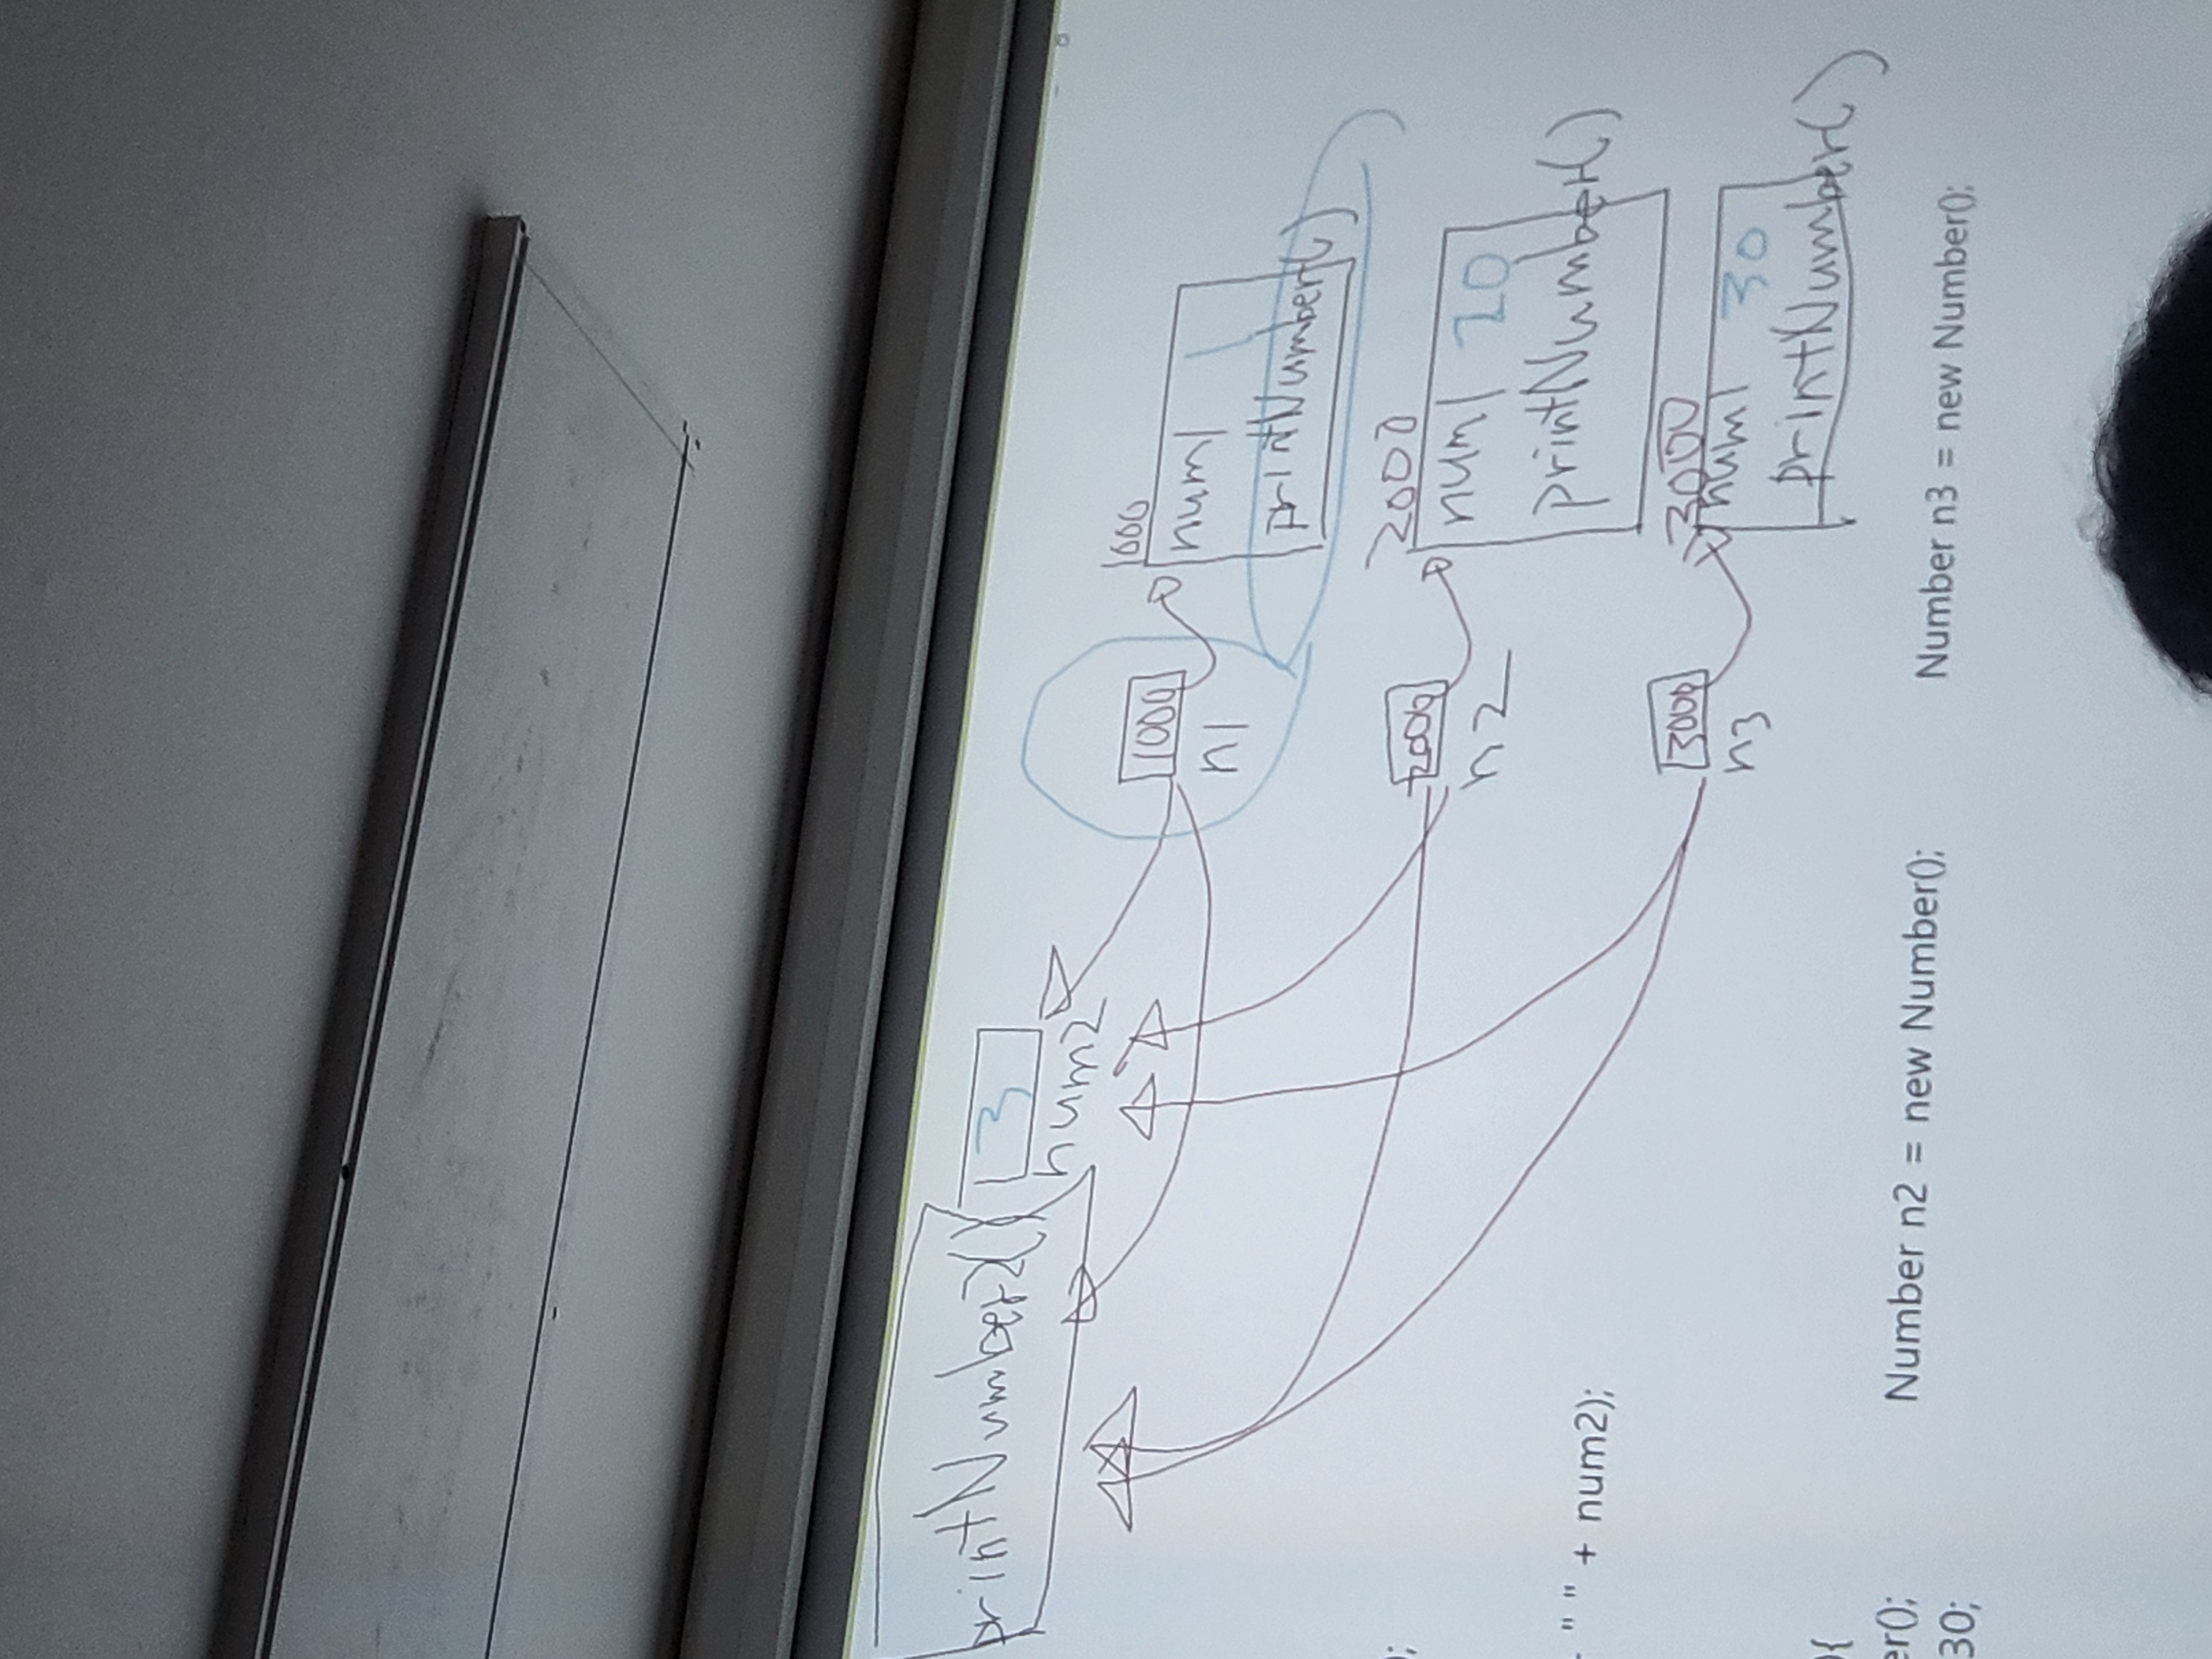 printNumber2()
3
num2
1000
n1
1000
num1 1
printNumber1()
2000
n2
2000
num1 20
printNumber1()
3000
n3
3000
num1 30
printNumber1()
" " + num2);
Number n2 = new Number();
Number n3 = new Number();
);
){
er();
30;